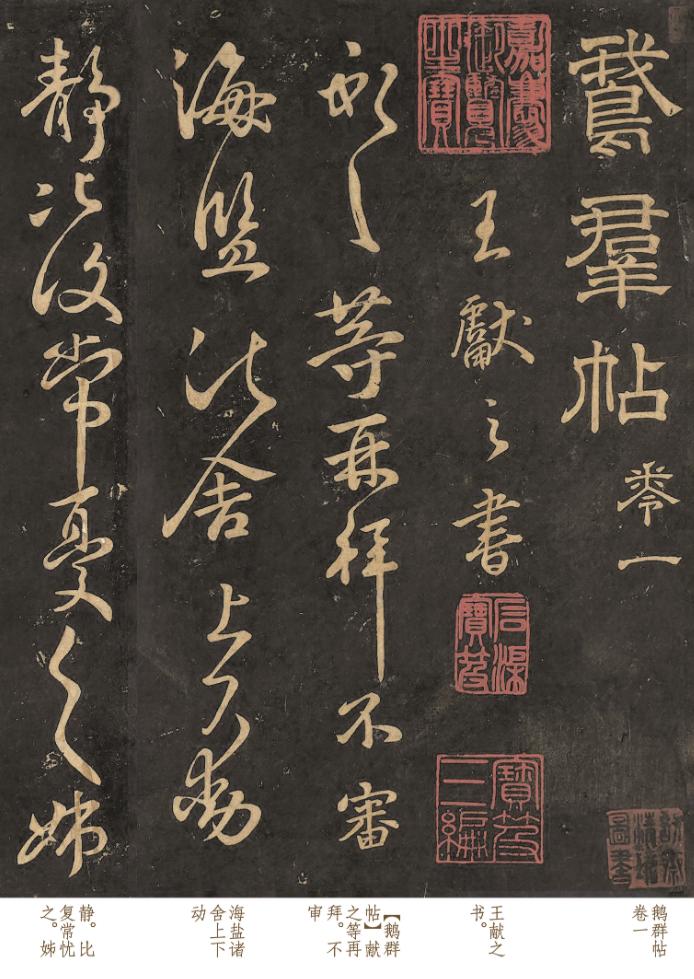 鵞羣帖卷一
嘉慶御覽之寶
王獻之書
石渠寶笈
寶笈三編
獻之等再拜不審
海鹽諸舍上下動
静比復常憂之姊
鹅群帖
卷一
王献之
书。
【鹅群
帖】献
之等再
拜。不
审
海盐诸
舍上下
动
静。比
复常忧
之。姊